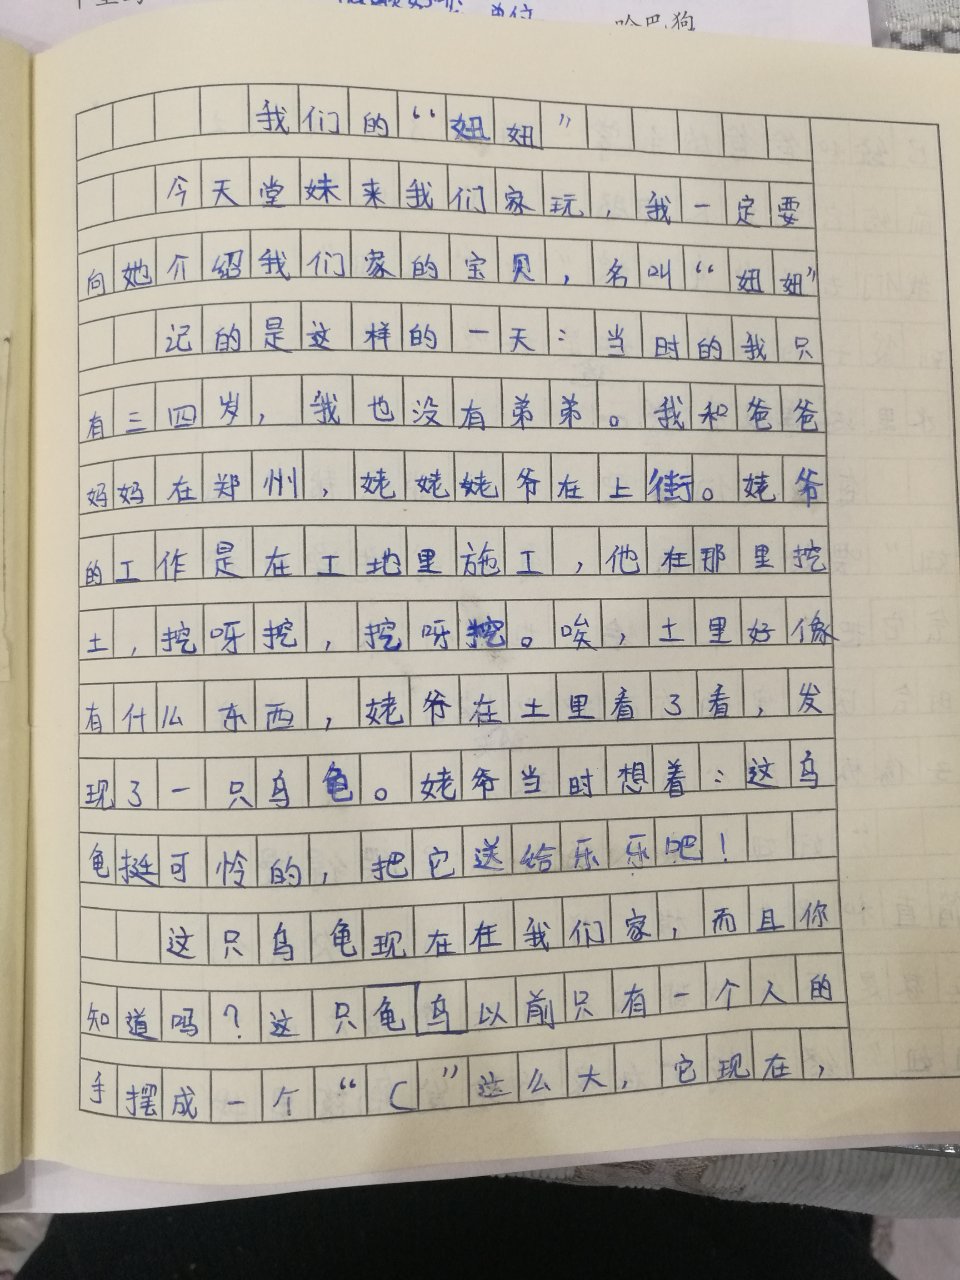 哈巴狗
我们的“妞妞”
今天堂妹来我们家玩，我一定要
向她介绍我们家的宝贝，名叫“妞妞”
记的是这样的一天：当时的我只
有三四岁，我也没有弟弟。我和爸爸
妈妈在郑州，姥姥姥爷在上街。姥爷
的工作是在工地里施工，他在那里挖
土，挖呀挖，挖呀挖。唉，土里好像
有什么东西，姥爷在土里看了看，发
现了一只乌龟。姥爷当时想着：这乌
龟挺可怜的，把它送给乐乐吧！
这只乌龟现在在我们家，而且你
知道吗？这只龟乌以前只有一个人的
手摆成一个“C”这么大，它现在，